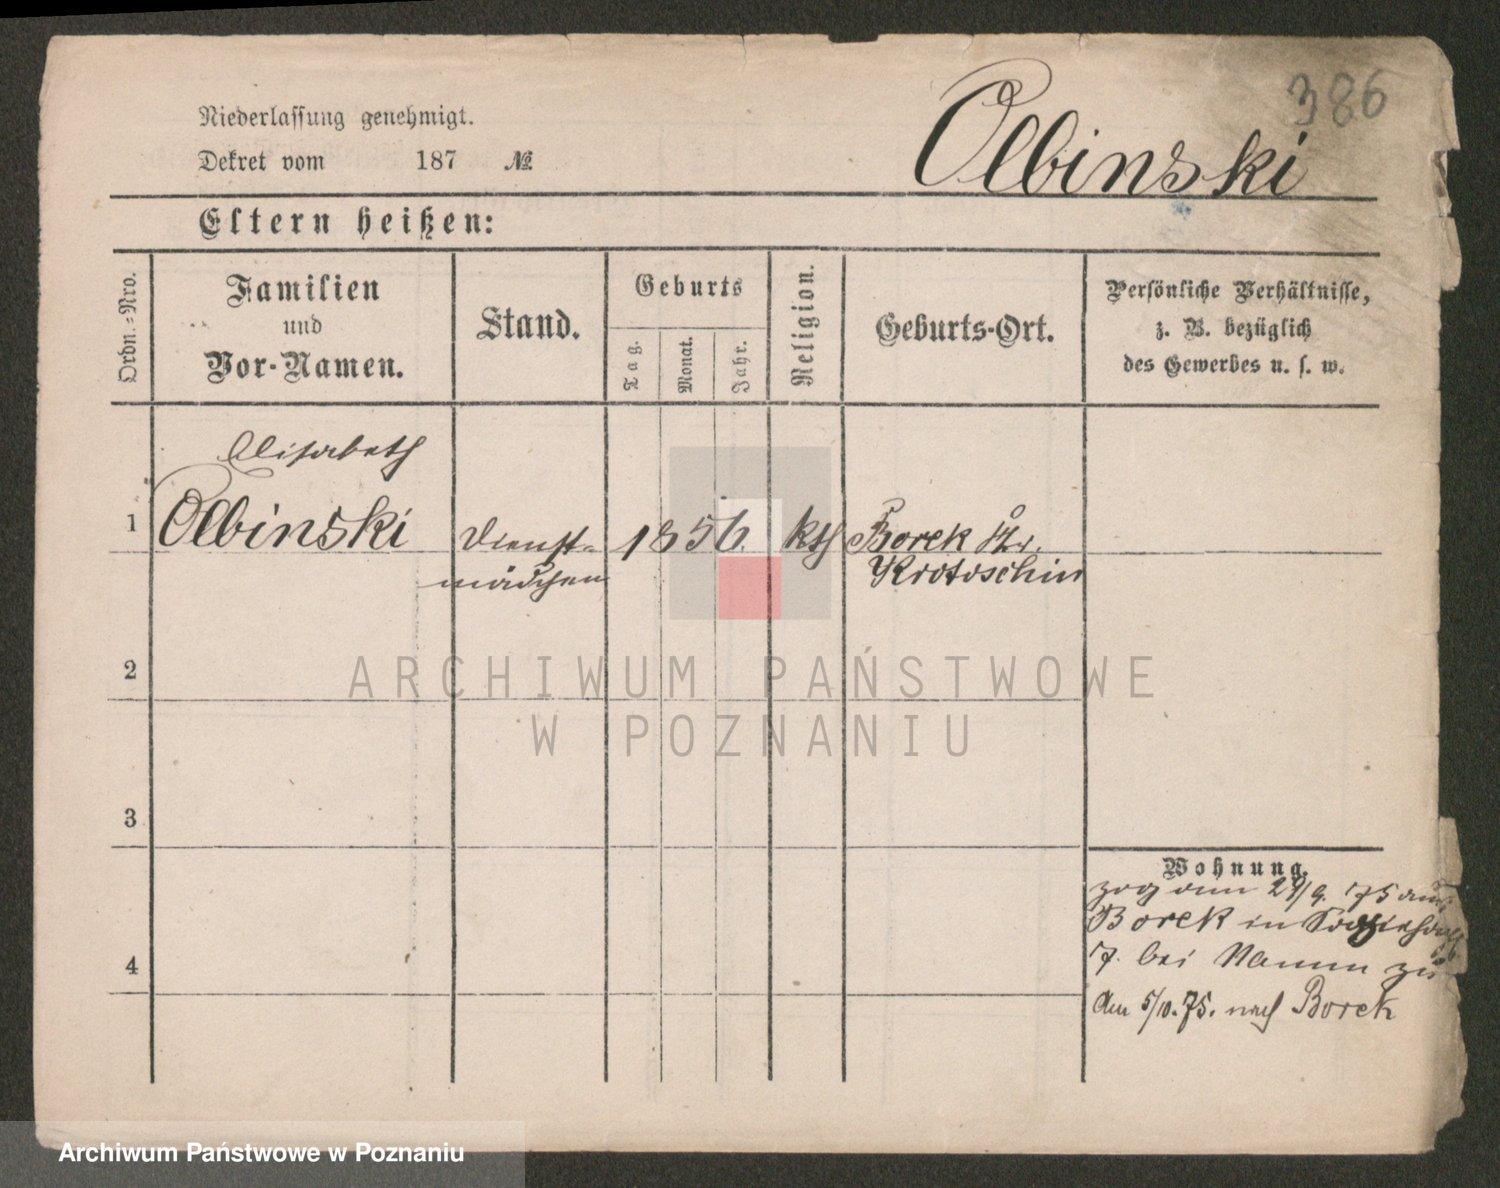 386
Olbinski
Niederlassung genehmigt.
Dekret vom 187 №
Eltern heißen:
Ordn.-Nro.
Familien
und
Vor-Namen.
Stand.
Geburts
Tag.
Monat.
Jahr.
Religion.
Geburts-Ort.
Persönliche Verhältnisse,
z. B. bezüglich
des Gewerbes u. s. w.
Elisabeth
1 Olbinski Dienst- 1856. kth Borek Kr.
mädchen Krotoschin
2
ARCHIWUM PAŃSTWOWE
W POZNANIU
3
4
Wohnung.
zog am 29/9. 75 aus
Borek in
7. bei zu
Am 5/10.75. nach Borek
Archiwum Państwowe w Poznaniu